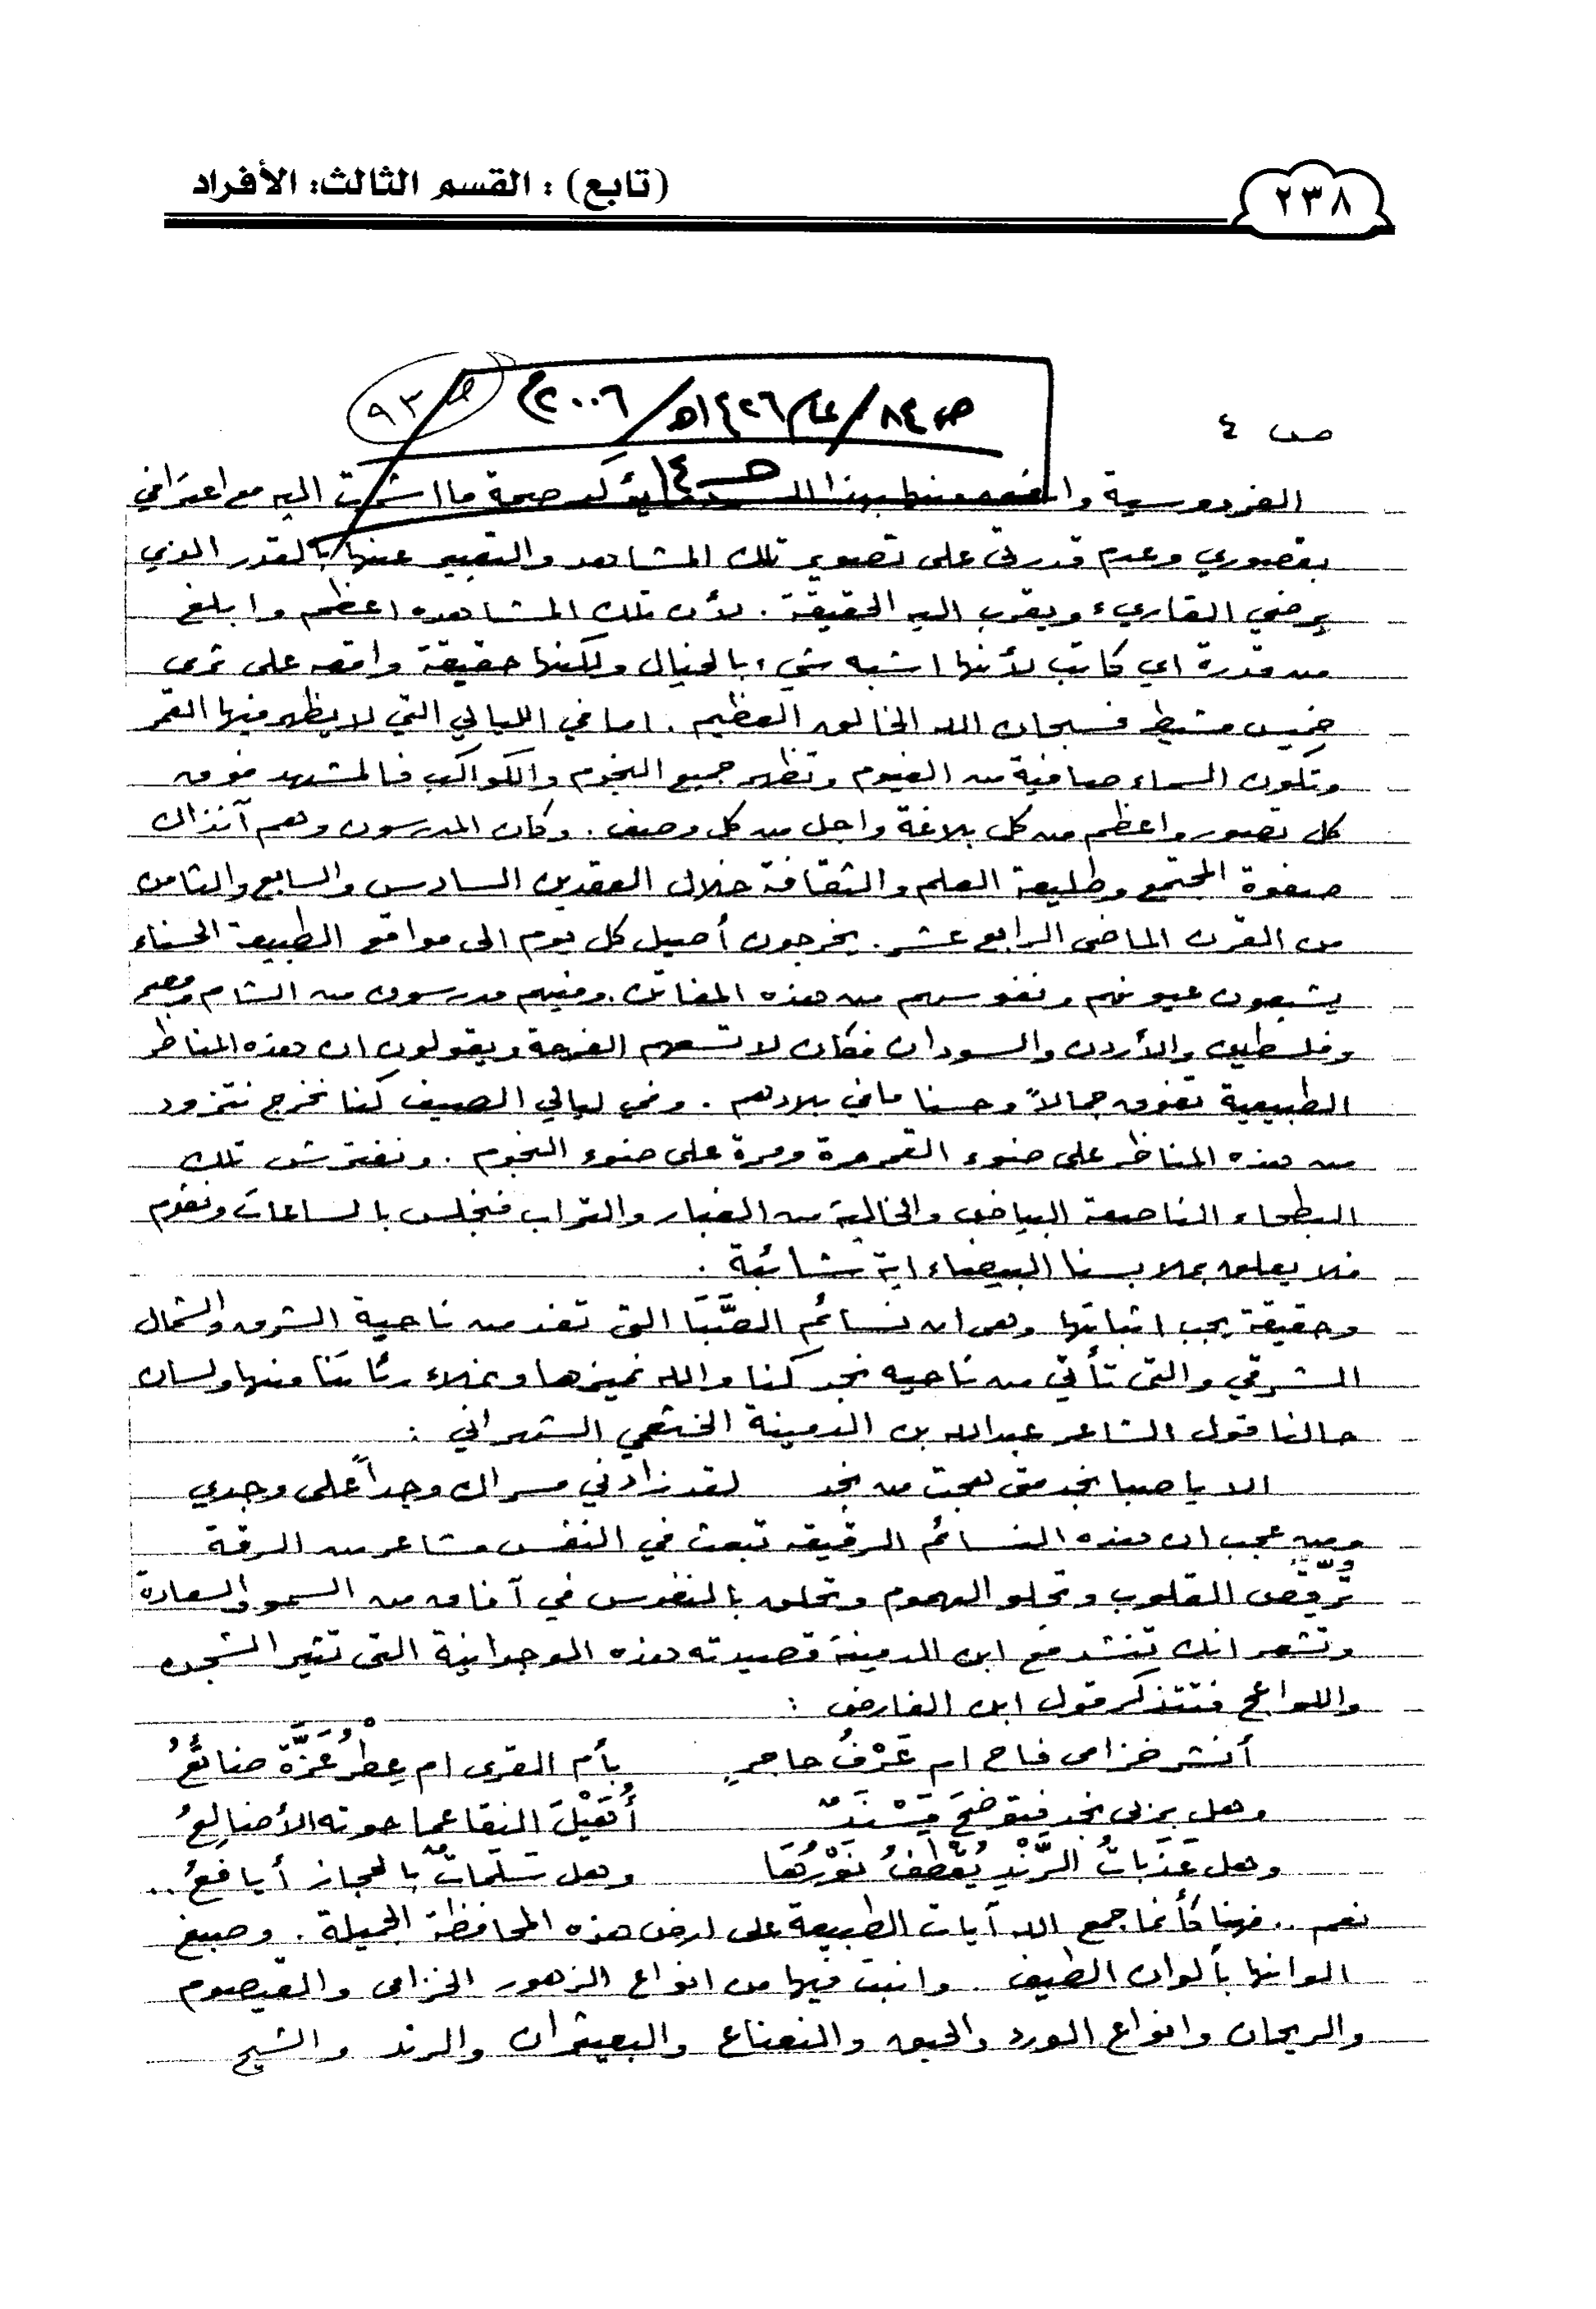 ٢٣٨
(تابع) : القسم الثالث: الأفراد
ص ٤
ص ٨٤/ عام ١٤٢٦هـ/ ٢٠٠٦م
ص ٩٣
هـ ١٤
الفردوسية يؤكد صحة ما اشرت اليه مع اعترافي
بقصوري وعدم قدرتي على تصوير تلك المشاهد والتعبير عنها بالقدر الذي
يرضي القاريء ويقرب اليه الحقيقة . لأن تلك المشاهد اعظم وابلغ
من قدرة اي كاتب لأنها اشبه شيء بالخيال ولكنها حقيقة واقعه على ثرى
خميس مشيط فسبحان الله الخالق العظيم . اما في الليالي التي لا يظهر فيها القمر
وتكون السماء صافية من الغيوم وتظهر جميع النجوم والكواكب فالمشهد فوق
كل تصور واعظم من كل بلاغة واجل من كل وصف . وكان المدرسون وهم آنذاك
صفوة المجتمع وطليعة العلم والثقافة خلال العقدين السادس والسابع والثامن
من القرن الماضي الرابع عشر . يخرجون أصيل كل يوم الى مواقع الطبيعة الحسناء
يشبعون عيونهم ونفوسهم من هذه المفاتن . وفيهم مدرسون من الشام ومصر
وفلسطين والأردن والسودان فكان لا تسعهم الفرحة ويقولون ان هذه المناظر
الطبيعية تفوق جمالاً وحسنا مافي بلادهم . وفي ليالي الصيف كنا نخرج نتزود
من هذه المناظر على ضوء القمر مرة ومرة على ضوء النجوم . ونفترش تلك
البطحاء الناصعة البياض والخالية من الغبار والتراب فنجلس بالساعات ونقوم
فلا يعلق بملابسنا البيضاء اية شائبة .
وحقيقة يجب اثباتها وهى ان نسائم الصَّبَا التي تفد من ناحية الشرق والشمال
الشرقي والتى تأتي من ناحيه نجد كنا والله نميزها ونملاء رئاتنا منها ولسان
حالنا قول الشاعر عبدالله بن الدمينة الخثعمي الشهراني :
الا يا صبا نجد متى هجت من نجد لقد زادني مسراك وجداً على وجدي
ومن عجب ان هذه النسائم الرقيقه تبعث في النفس مشاعر من الرقة
تُرقّص القلوب وتجلو الهموم وتحلق بالنفوس في آفاق من السمو والسعادة
وتشعر انك تنشد مع ابن الدمينة قصيدته هذه الوجدانية التى تثير الشجن
واللواعج فتتذكر قول ابن الفارض :
أنشر خزامى فاح ام عَرْفُ حاجرٍ بأم القرى ام عِطْرُ عَزَّةَ ضائعُ
وهل بربى نجد فتوضحَ مَسْنَدٌ أُهَيْلَ النقا عما حوته الأضالِعُ
وهل عَذَباتُ الرَّنْدِ يُقْطَفُ نَوْرُهَا وهل سَلَماتٌ بالحجاز أيافِعُ ..
نعم .. فهنا كأنما جمع الله آيات الطبيعة على ارض هذه المحافظة الجميلة . وصبغ
الوانها بألوان الطيف . وانبت فيها من انواع الزهور الخزامى والقيصوم
والريحان وانواع الورد والحبق والنعناع والبعيثران والرند والشيح